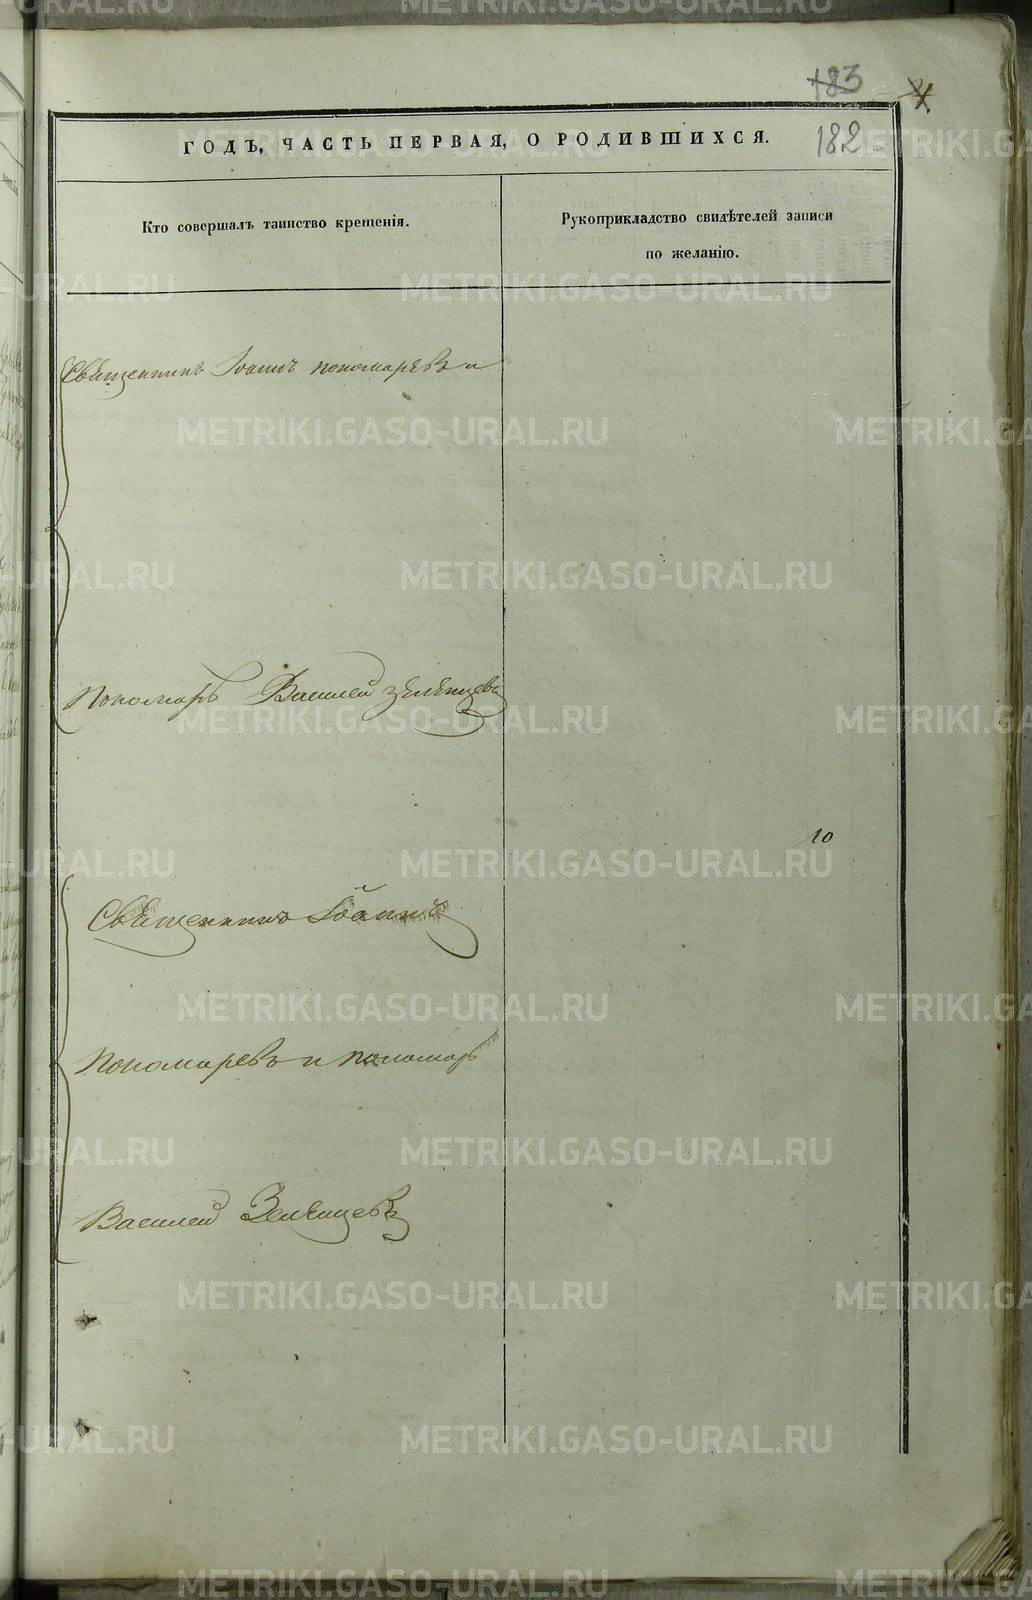 183
4
182
ГОДЪ, ЧАСТЬ ПЕРВАЯ, О РОДИВШИХСЯ.
Кто совершалъ таинство крещенія.
Рукоприкладство свидѣтелей записи
по желанію.
Священникъ Іоаннъ Пономаревъ и
Пономарь Василей Зеленцевъ
10
Священникъ Іоаннъ
Пономаревъ и пономарь
Василей Зеленцевъ
METRIKI.GASO-URAL.RU